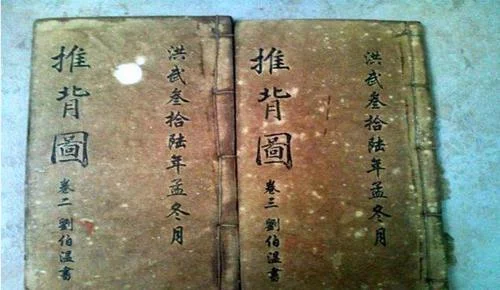 洪武叁拾陸年孟冬月
推背圖
卷三 劉伯温書
洪武叁拾陸年孟冬月
推背圖
卷二 劉伯温書